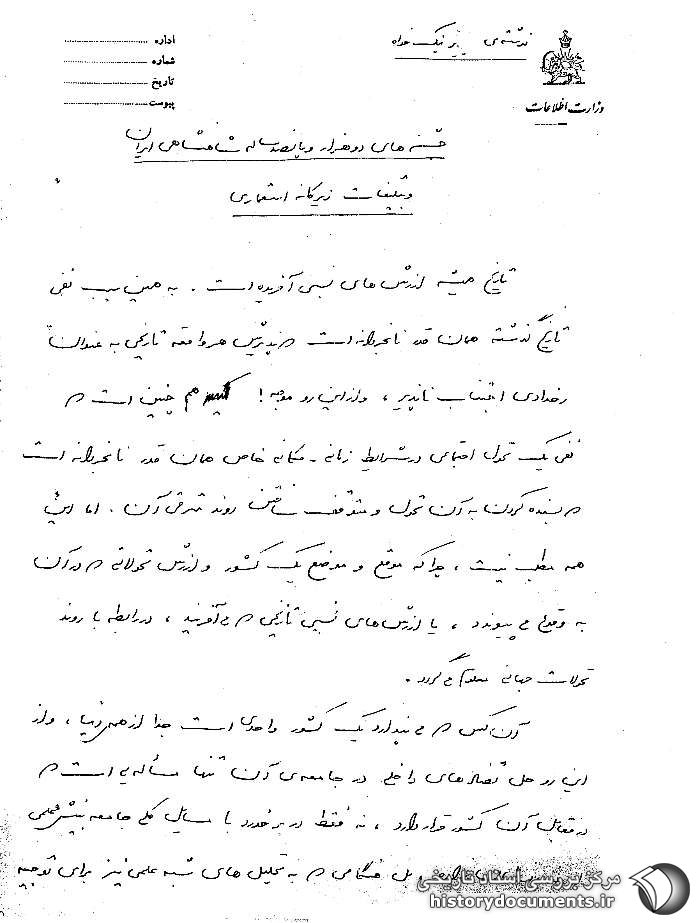 اداره
شماره
تاریخ
پیوست
نوشته‌ی پرویز نیکخواه
وزارت اطلاعات
جشن های دوهزار و پانصد ساله شاهنشاهی ایران
و تبلیغات زیرکانه استعماری
تاریخ همیشه ارزش های نسبی آفریده است . به همین سبب نفی
تاریخ گذشته همان قدر نابخردانه است که پذیرش هر واقعه تاریخی به عنوان
رخدادی اجتناب ناپذیر ، و از این رو موجه ! هم چنین است که
نفی یک تحول اجتماعی در شرایط زمانی - مکانی خاص همان قدر نابخردانه است
که بسنده کردن به آن تحول و متوقف ساختن روند مترقی آن . اما این
همه مطلب نیست ، چرا که موقع و موضع یک کشور و ارزش تحولاتی که در آن
به وقوع می پیوندد ، یا ارزش های نسبی تاریخی که می آفریند ، در رابطه با روند
تحولات جهانی معلوم می گردد .
آن کس که می پندارد یک کشور واحدی است جدا از همه دنیا ، و از
این رو حل تضادهای داخلی در جامعه‌ی آن تنها مسأله یی است که
در مقابل آن کشور قرار دارد ، نه فقط در برخورد با مسایل کلی جامعه بینش علمی
هنگامی که به تحلیل های شبه علمی نیز برای توجیه
مرکز بررسی اسناد تاریخی
historydocuments.ir